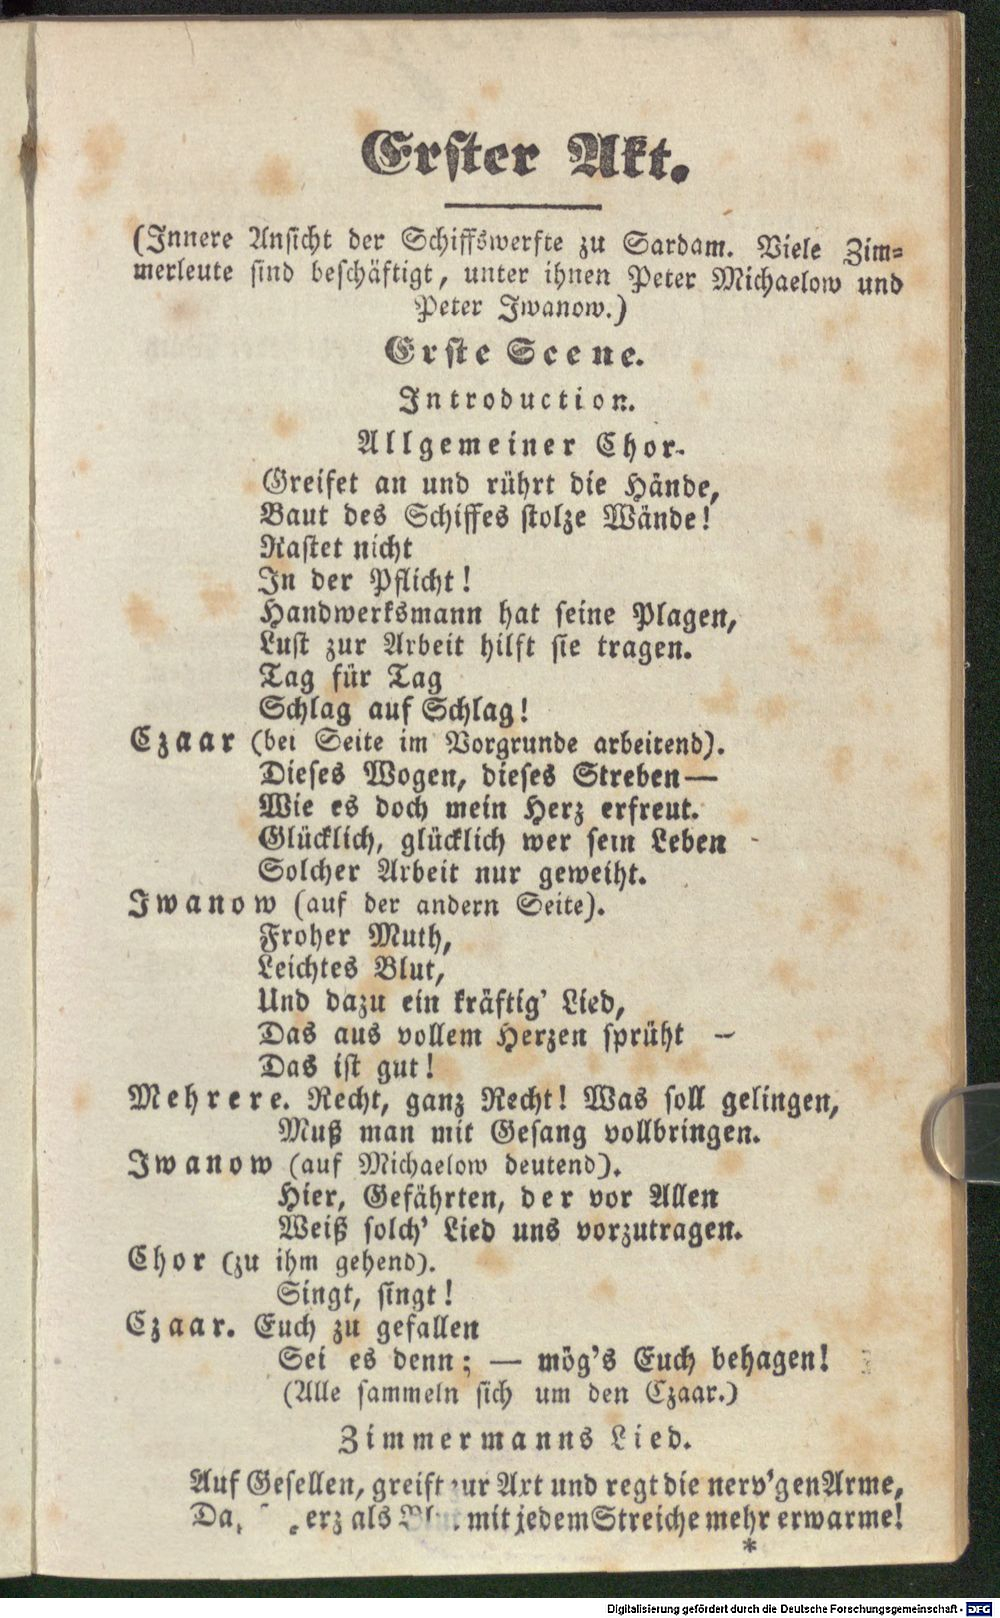 Erster Akt.
(Innere Ansicht der Schiffswerfte zu Sardam. Viele Zim-
merleute sind beschäftigt, unter ihnen Peter Michaelow und
Peter Iwanow.)
Erste Scene.
Introduction.
Allgemeiner Chor.
Greifet an und rührt die Hände,
Baut des Schiffes stolze Wände!
Rastet nicht
In der Pflicht!
Handwerksmann hat seine Plagen,
Lust zur Arbeit hilft sie tragen.
Tag für Tag
Schlag auf Schlag!
Czaar (bei Seite im Vorgrunde arbeitend).
Dieses Wogen, dieses Streben—
Wie es doch mein Herz erfreut.
Glücklich, glücklich wer sein Leben
Solcher Arbeit nur geweiht.
Iwanow (auf der andern Seite).
Froher Muth,
Leichtes Blut,
Und dazu ein kräftig' Lied,
Das aus vollem Herzen sprüht —
Das ist gut!
Mehrere. Recht, ganz Recht! Was soll gelingen,
Muß man mit Gesang vollbringen.
Iwanow (auf Michaelow deutend).
Hier, Gefährten, der vor Allen
Weiß solch' Lied uns vorzutragen.
Chor (zu ihm gehend).
Singt, singt!
Czaar. Euch zu gefallen
Sei es denn; — mög's Euch behagen!
(Alle sammeln sich um den Czaar.)
Zimmermanns Lied.
Auf Gesellen, greift zur Axt und regt die nerv'gen Arme,
als mit jedem Streiche mehr erwarme!
*
Digitalisierung gefördert durch die Deutsche Forschungsgemeinschaft - DFG